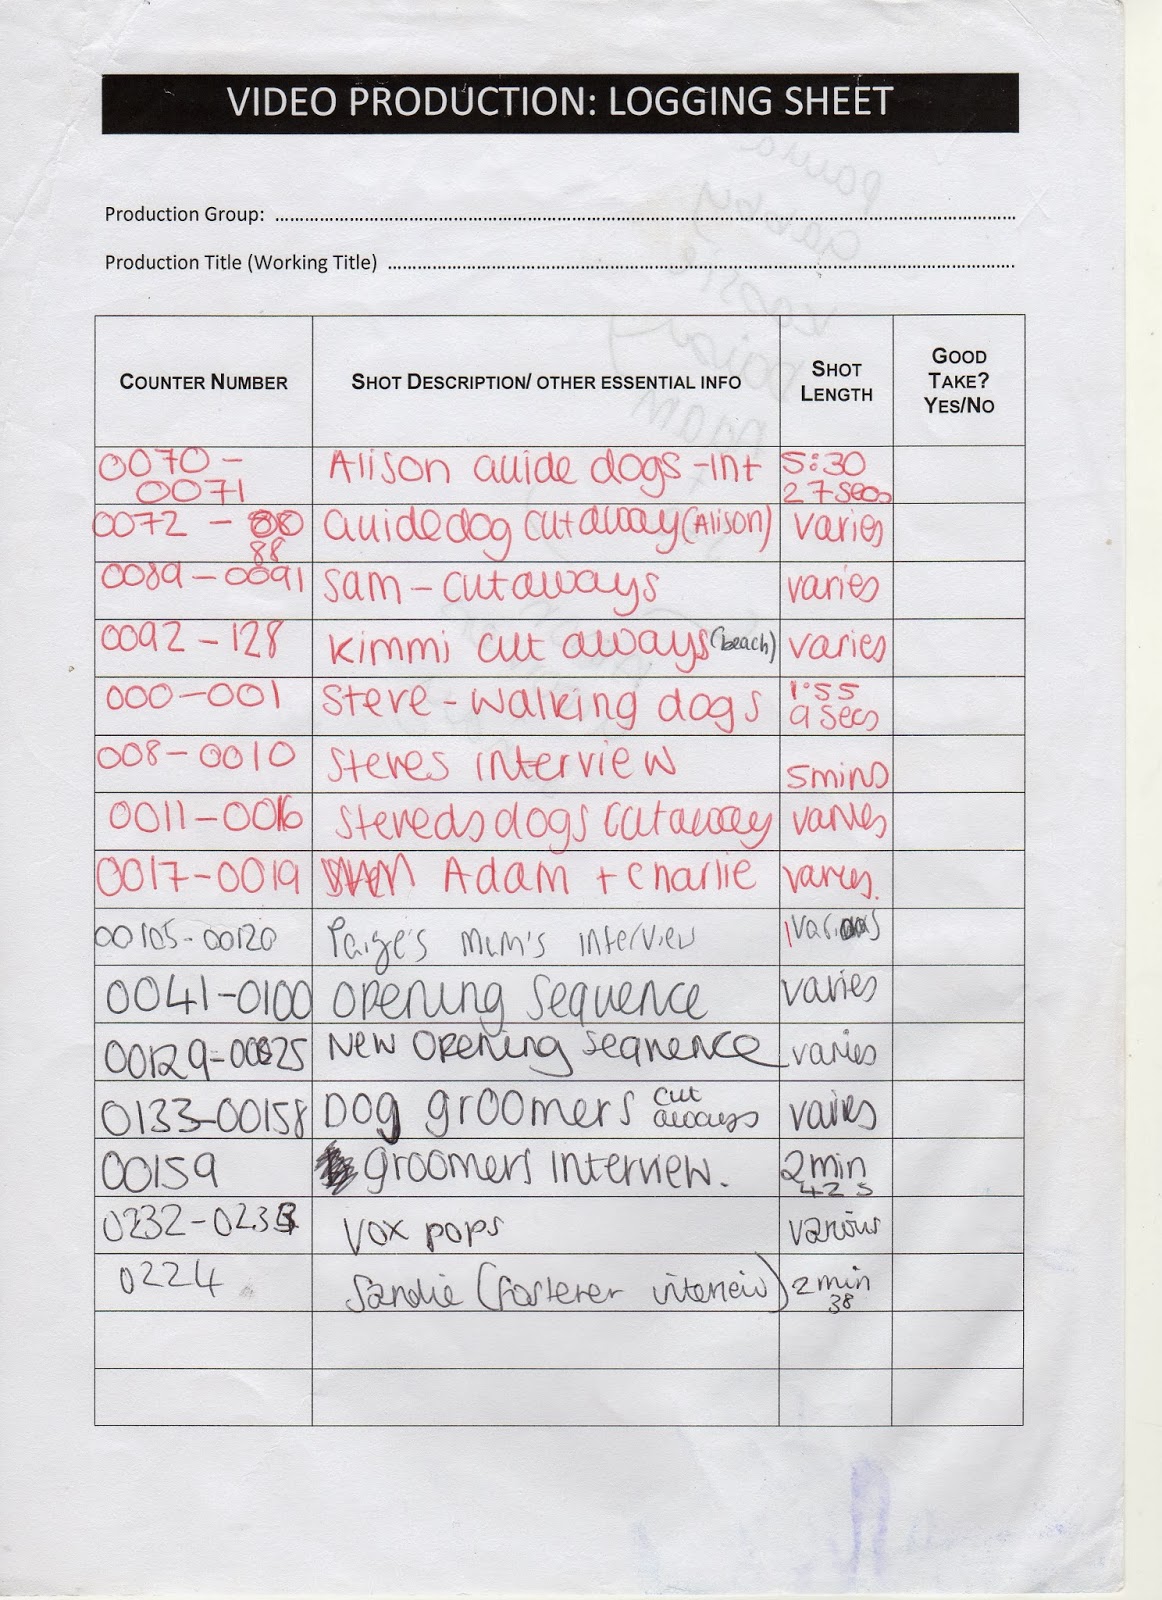 VIDEO PRODUCTION: LOGGING SHEET
Production Group:
Production Title (Working Title)
COUNTER NUMBER SHOT DESCRIPTION/ OTHER ESSENTIAL INFO SHOT LENGTH GOOD TAKE? YES/NO
0070 - 0071 Alison Guide dogs - Int 5:30 27secs
0072 - 88 Guidedog cutaway (Alison) varies
0089 - 0091 Sam - cutaways varies
0092 - 128 Kimmi cut aways (beach) varies
000 - 001 Steve - walking dogs 1:55 9 secs
008 - 0010 Steves interview 5mins
0011 - 0016 dogs cutaway varies
0017 - 0019 Adam + Charlie varies.
00105 - 00120 Paige's Mum's interview
0041 - 0100 Opening Sequence varies
00129 - New Opening Sequence varies
0133 - 00158 Dog groomers cut aways varies
00159 groomers interview. 2min 42 s
0232 - Vox pops various
0224 Sandie (fosterer interview) 2min 38